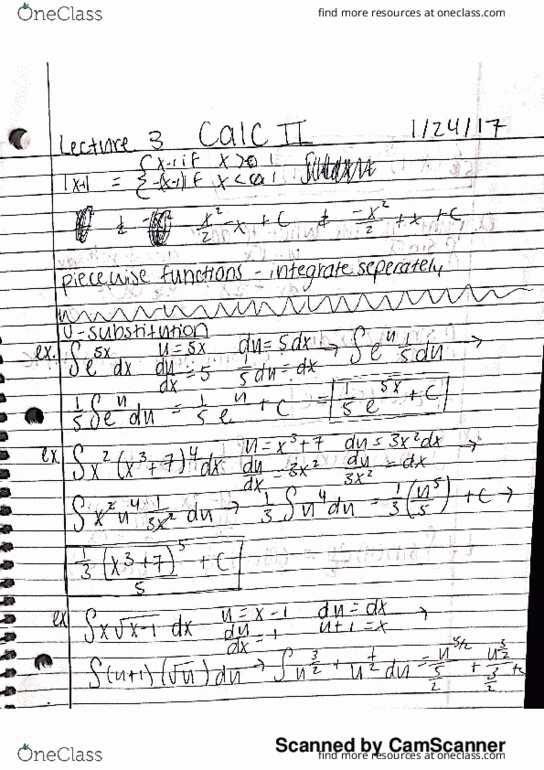 OneClass find more resources at oneclass.com
Lecture 3 Calc II 1/24/17
|x-1| = { x-1 if x > 1
{ -(x-1) if x < 1
x²/2 - x + C & -x²/2 + x + C
piecewise functions - integrate seperately
U-substitution
ex. ∫e^5x dx u = 5x du = 5dx → ∫e^u 1/5 du →
du/dx = 5 1/5 du = dx
1/5 ∫e^u du = 1/5 e^u + C = 1/5 e^5x + C
ex ∫x²(x³+7)^4 dx u = x³+7 du = 3x²dx →
du/dx = 3x² du/3x² = dx
∫x² u^4 1/3x² du → 1/3 ∫u^4 du = 1/3 (u^5/5) + C →
1/3 (x³+7)^5/5 + C
ex ∫x√x-1 dx u = x-1 du = dx →
du/dx = 1 u+1 = x
∫(u+1)(√u) du → ∫u^3/2 + u^1/2 du = u^5/2 / 5/2 + u^3/2 / 3/2 + C
Scanned by CamScanner
OneClass find more resources at oneclass.com